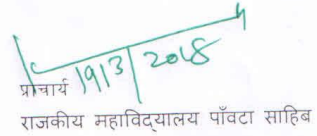 19/3/2018
प्राचार्य
राजकीय महाविद्यालय पाँवटा साहिब